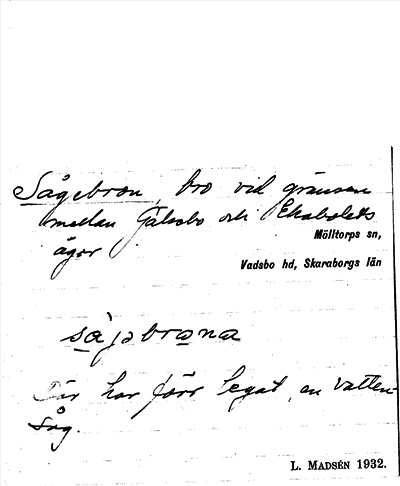 Sågebron, bro vid gränsen
mellan Gälsebo och Ekebolets
Mölltorps sn,
ägor
Vadsbo hd, Skaraborgs län
sågəbrona
Där har förr legat en vatten-
såg.
L. MADSÉN 1932.